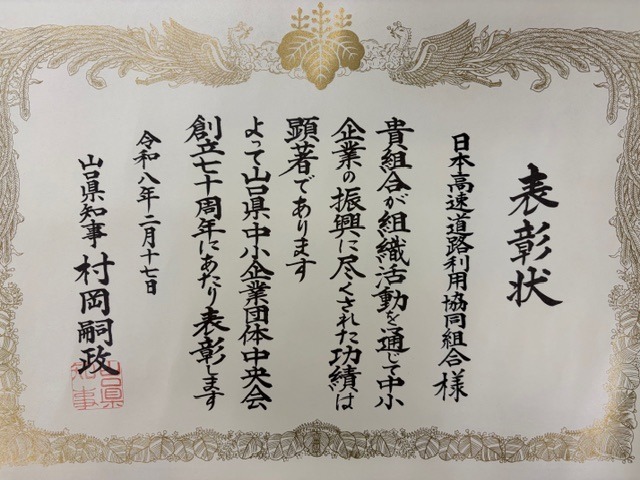 表彰状
日本高速道路利用協同組合 様
貴組合が組織活動を通じて中小
企業の振興に尽くされた功績は
顕著であります
よって山口県中小企業団体中央会
創立七十周年にあたり表彰します
令和八年二月十七日
山口県知事 村岡嗣政
山口県
知事